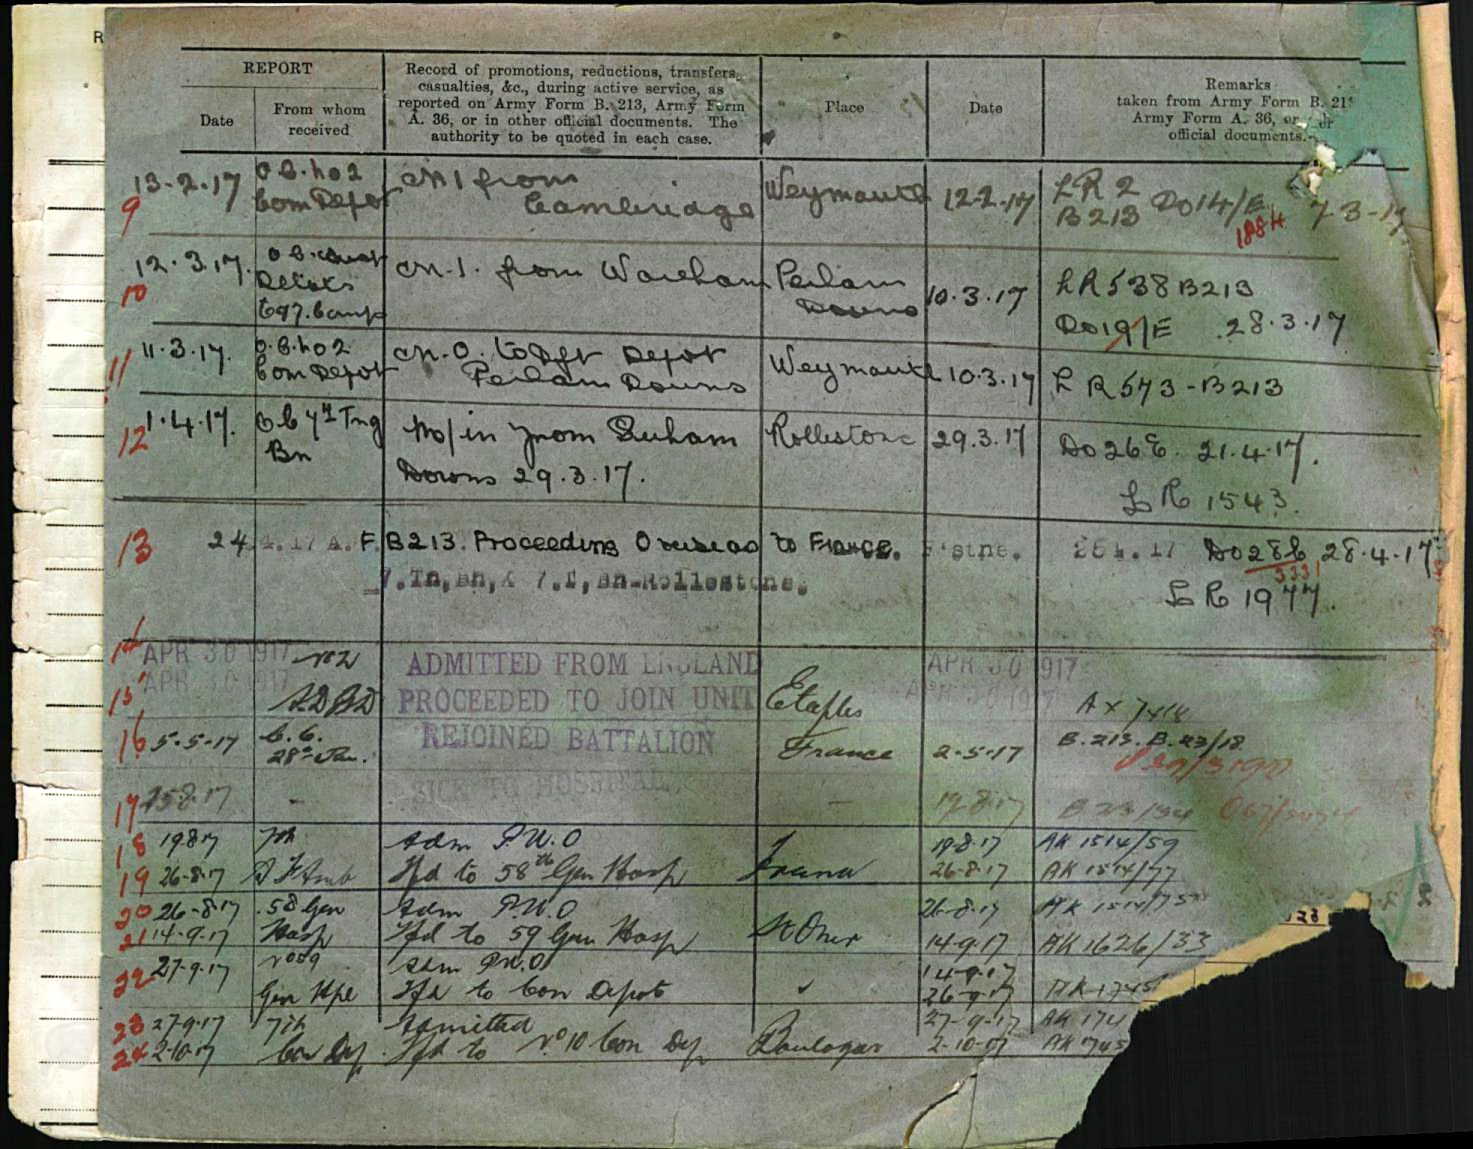 R
REPORT
Date
From whom
received
Record of promotions, reductions, transfers,
casualties, &c., during active service, as
reported on Army Form B. 213, Army Form
A. 36, or in other official documents. The
authority to be quoted in each case.
Place
Date
Remarks
taken from Army Form B. 21
Army Form A. 36, or
official documents.
9 13-2-17 O.C. No 2 M I from Weymouth 12-2-17 L R 2 Do 14/E 7 3-17
Com Depot Cambridge B213 1884
10 12.3.17. Details M.I. from Wareham Perham 10.3.17 L R 538 B213
Downs Do 19/E 28.3.17
11 11.3.17. O.C. No 2 M.O. to Depot Weymouth 10.3.17 L R 573 - B213
Com Depot Perham Downs
12 1.4.17. O C 7th Tng M/in from Durham Rollestone 29.3.17 Do 26 E. 21.4.17.
Bn Downs 29.3.17. L R 1543.
13 24.4.17 A.F. B213. Proceeding Overseas to France. F'stne. 25 4.17 Do 28 28.4.17
7.Tn,Bn, 7.T,Bn-Rollestone. 3331
L R 1977.
14 APR 30 1917 ADMITTED FROM ENGLAND APR 30 1917
15 APR 30 1917 PROCEEDED TO JOIN UNIT Etaples APR 30 1917 A
16 5-5-17 C.O. REJOINED BATTALION France 2-5-17 B.213. B.23/18
28th
17 25 8 17 - SICK TO HOSPITAL - 19 8 17 B 23/34
18 19 8 17 7th Adm P.U.O 19 8 17 AK 1514/59
19 26-8-17 A F Amb Tfd to 58th Gen Hosp France 26-8-17 AK 1514/77
20 26-8-17 58 Gen Adm P.U.O 26-8-17 AK 1514/75
21 14-9-17 Hosp Tfd to 59 Gen Hosp St Omer 14-9-17 AK 1626/33
22 27-9-17 No 59 Adm P.U.O 14-9-17
Gen Hpl Tfd to Con Depot 26-9-17 AK 1745
23 27-9-17 7th Admitted 27-9-17 AK 174
24 2-10-17 Con Dep Tfd to No 10 Con Dep Boulogne 2-10-17 AK 1745